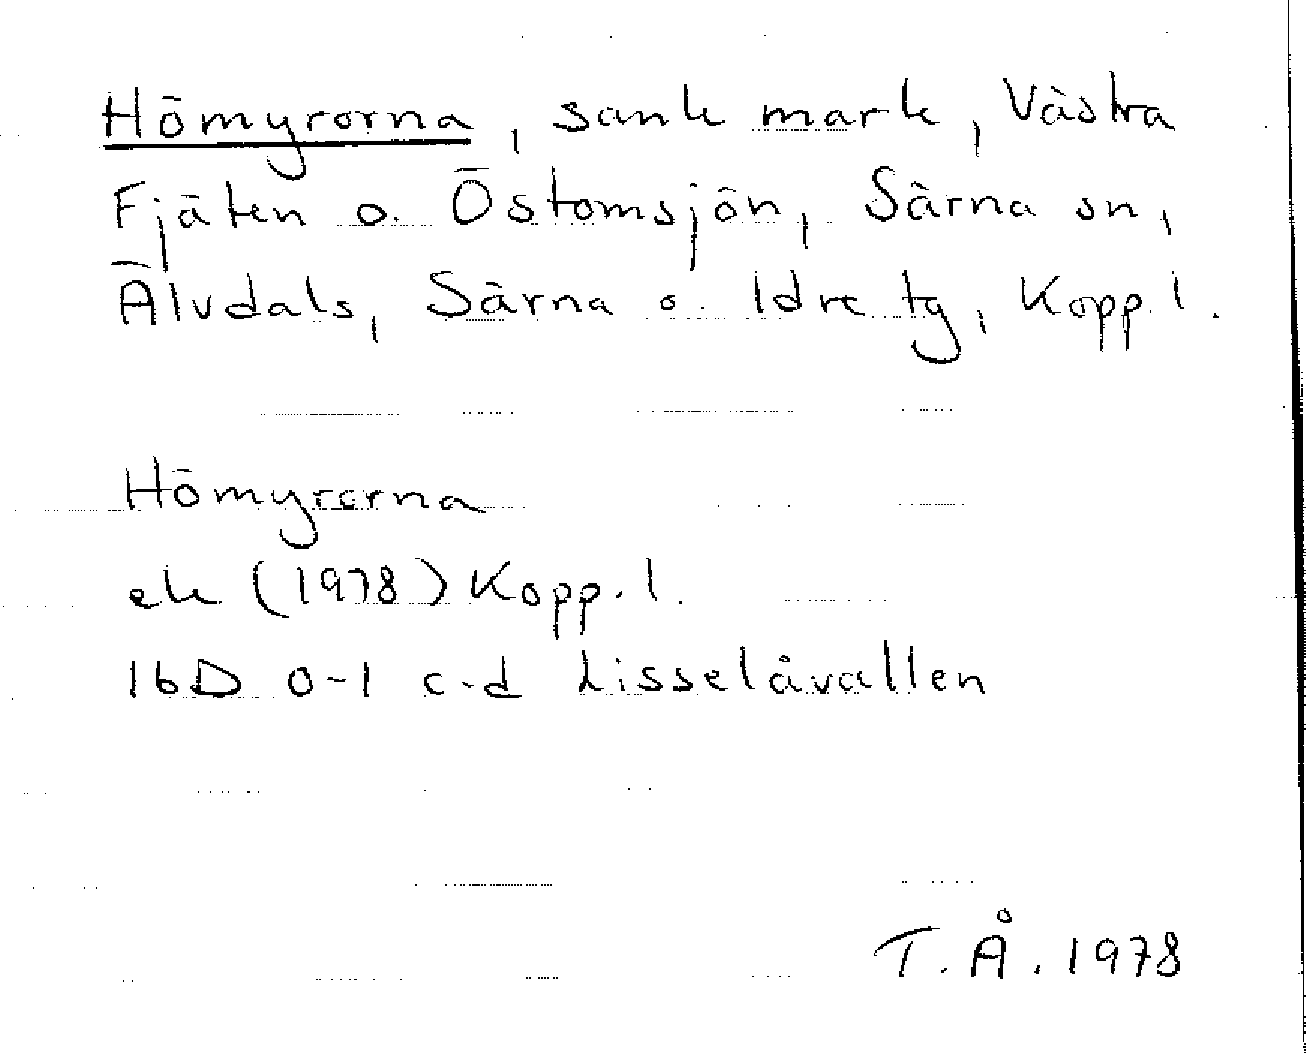 Hömyrorna, sank mark, Västra
Fjäten o. Östomsjön, Särna sn,
Älvdals, Särna o. Idre tg, Kopp. l.
Hömyrorna
ek (1978) Kopp. l.
16D 0-1 c-d Lisselåvallen
T.Å. 1978